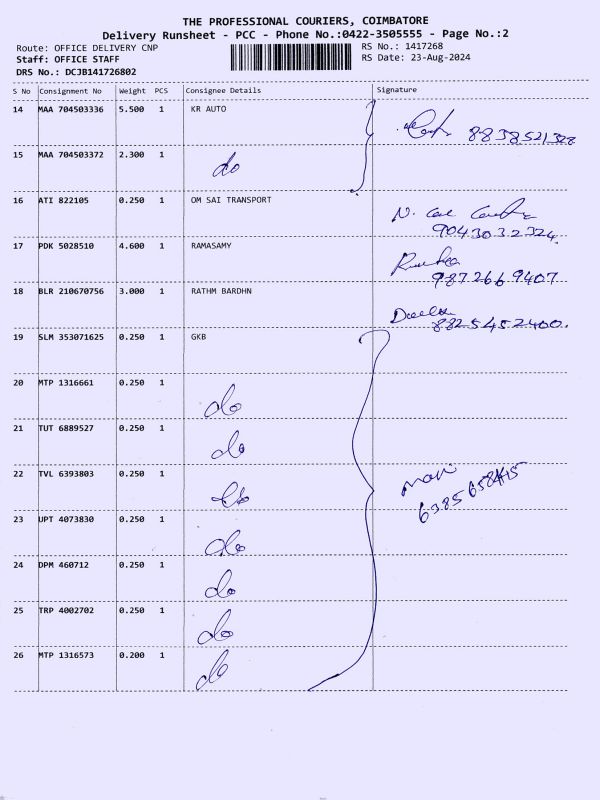 THE PROFESSIONAL COURIERS, COIMBATORE
Delivery Runsheet - PCC - Phone No.:0422-3505555 - Page No.:2
Route: OFFICE DELIVERY CNP
Staff: OFFICE STAFF
DRS No.: DCJB141726802
RS No.: 1417268
RS Date: 23-Aug-2024
S No Consignment No Weight PCS Consignee Details Signature
14 MAA 704503336 5.500 1 KR AUTO
8838521328
15 MAA 704503372 2.300 1 do
16 ATI 822105 0.250 1 OM SAI TRANSPORT
9043032324
17 PDK 5028510 4.600 1 RAMASAMY
9872669407
18 BLR 210670756 3.000 1 RATHM BARDHN
8825452400.
19 SLM 353071625 0.250 1 GKB
20 MTP 1316661 0.250 1 do
21 TUT 6889527 0.250 1 do
22 TVL 6393803 0.250 1 do
mari
23 UPT 4073830 0.250 1 do
24 DPM 460712 0.250 1 do
25 TRP 4002702 0.250 1 do
26 MTP 1316573 0.200 1 do